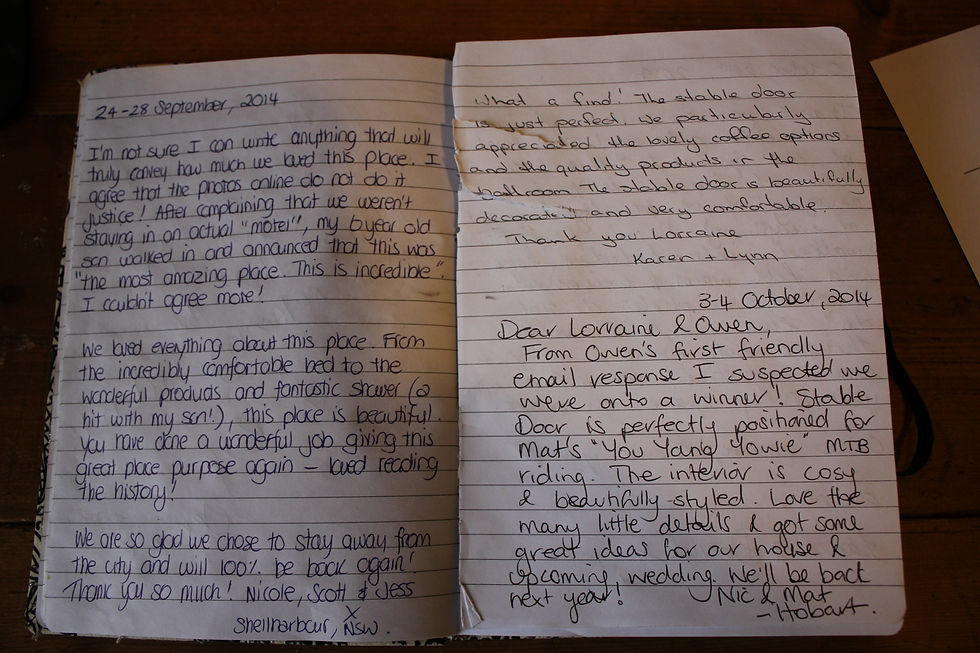 24-28 September, 2014
I'm not sure I can write anything that will
truly convey how much we loved this place. I
agree that the photos online do not do it
justice! After complaining that we weren't
staying in an actual "motel", my 6 year old
son walked in and announced that this was
"the most amazing place. This is incredible".
I couldn't agree more!
We loved everything about this place. From
the incredibly comfortable bed to the
wonderful products and fantastic shower (a
hit with my son!), this place is beautiful.
You have done a wonderful job giving this
great place purpose again – loved reading
the history!
We are so glad we chose to stay away from
the city and will 100% be back again!
Thank you so much! Nicole, Scott & Jess
X
Shellharbour, NSW.
What a find! The stable door
is just perfect. We particularly
appreciated the lovely coffee options
and the quality products in the
bathroom. The stable door is beautifully
decorated and very comfortable.
Thank you Lorraine
Karen + Lynn
3-4 October, 2014
Dear Lorraine & Owen,
From Owen's first friendly
email response I suspected we
were onto a winner! Stable
Door is perfectly positioned for
Mat's "You Yang Yowie" MTB
riding. The interior is cosy
& beautifully styled. Love the
many little details & got some
great ideas for our house &
upcoming wedding. We'll be back
next year! Nic & Mat
- Hobart.